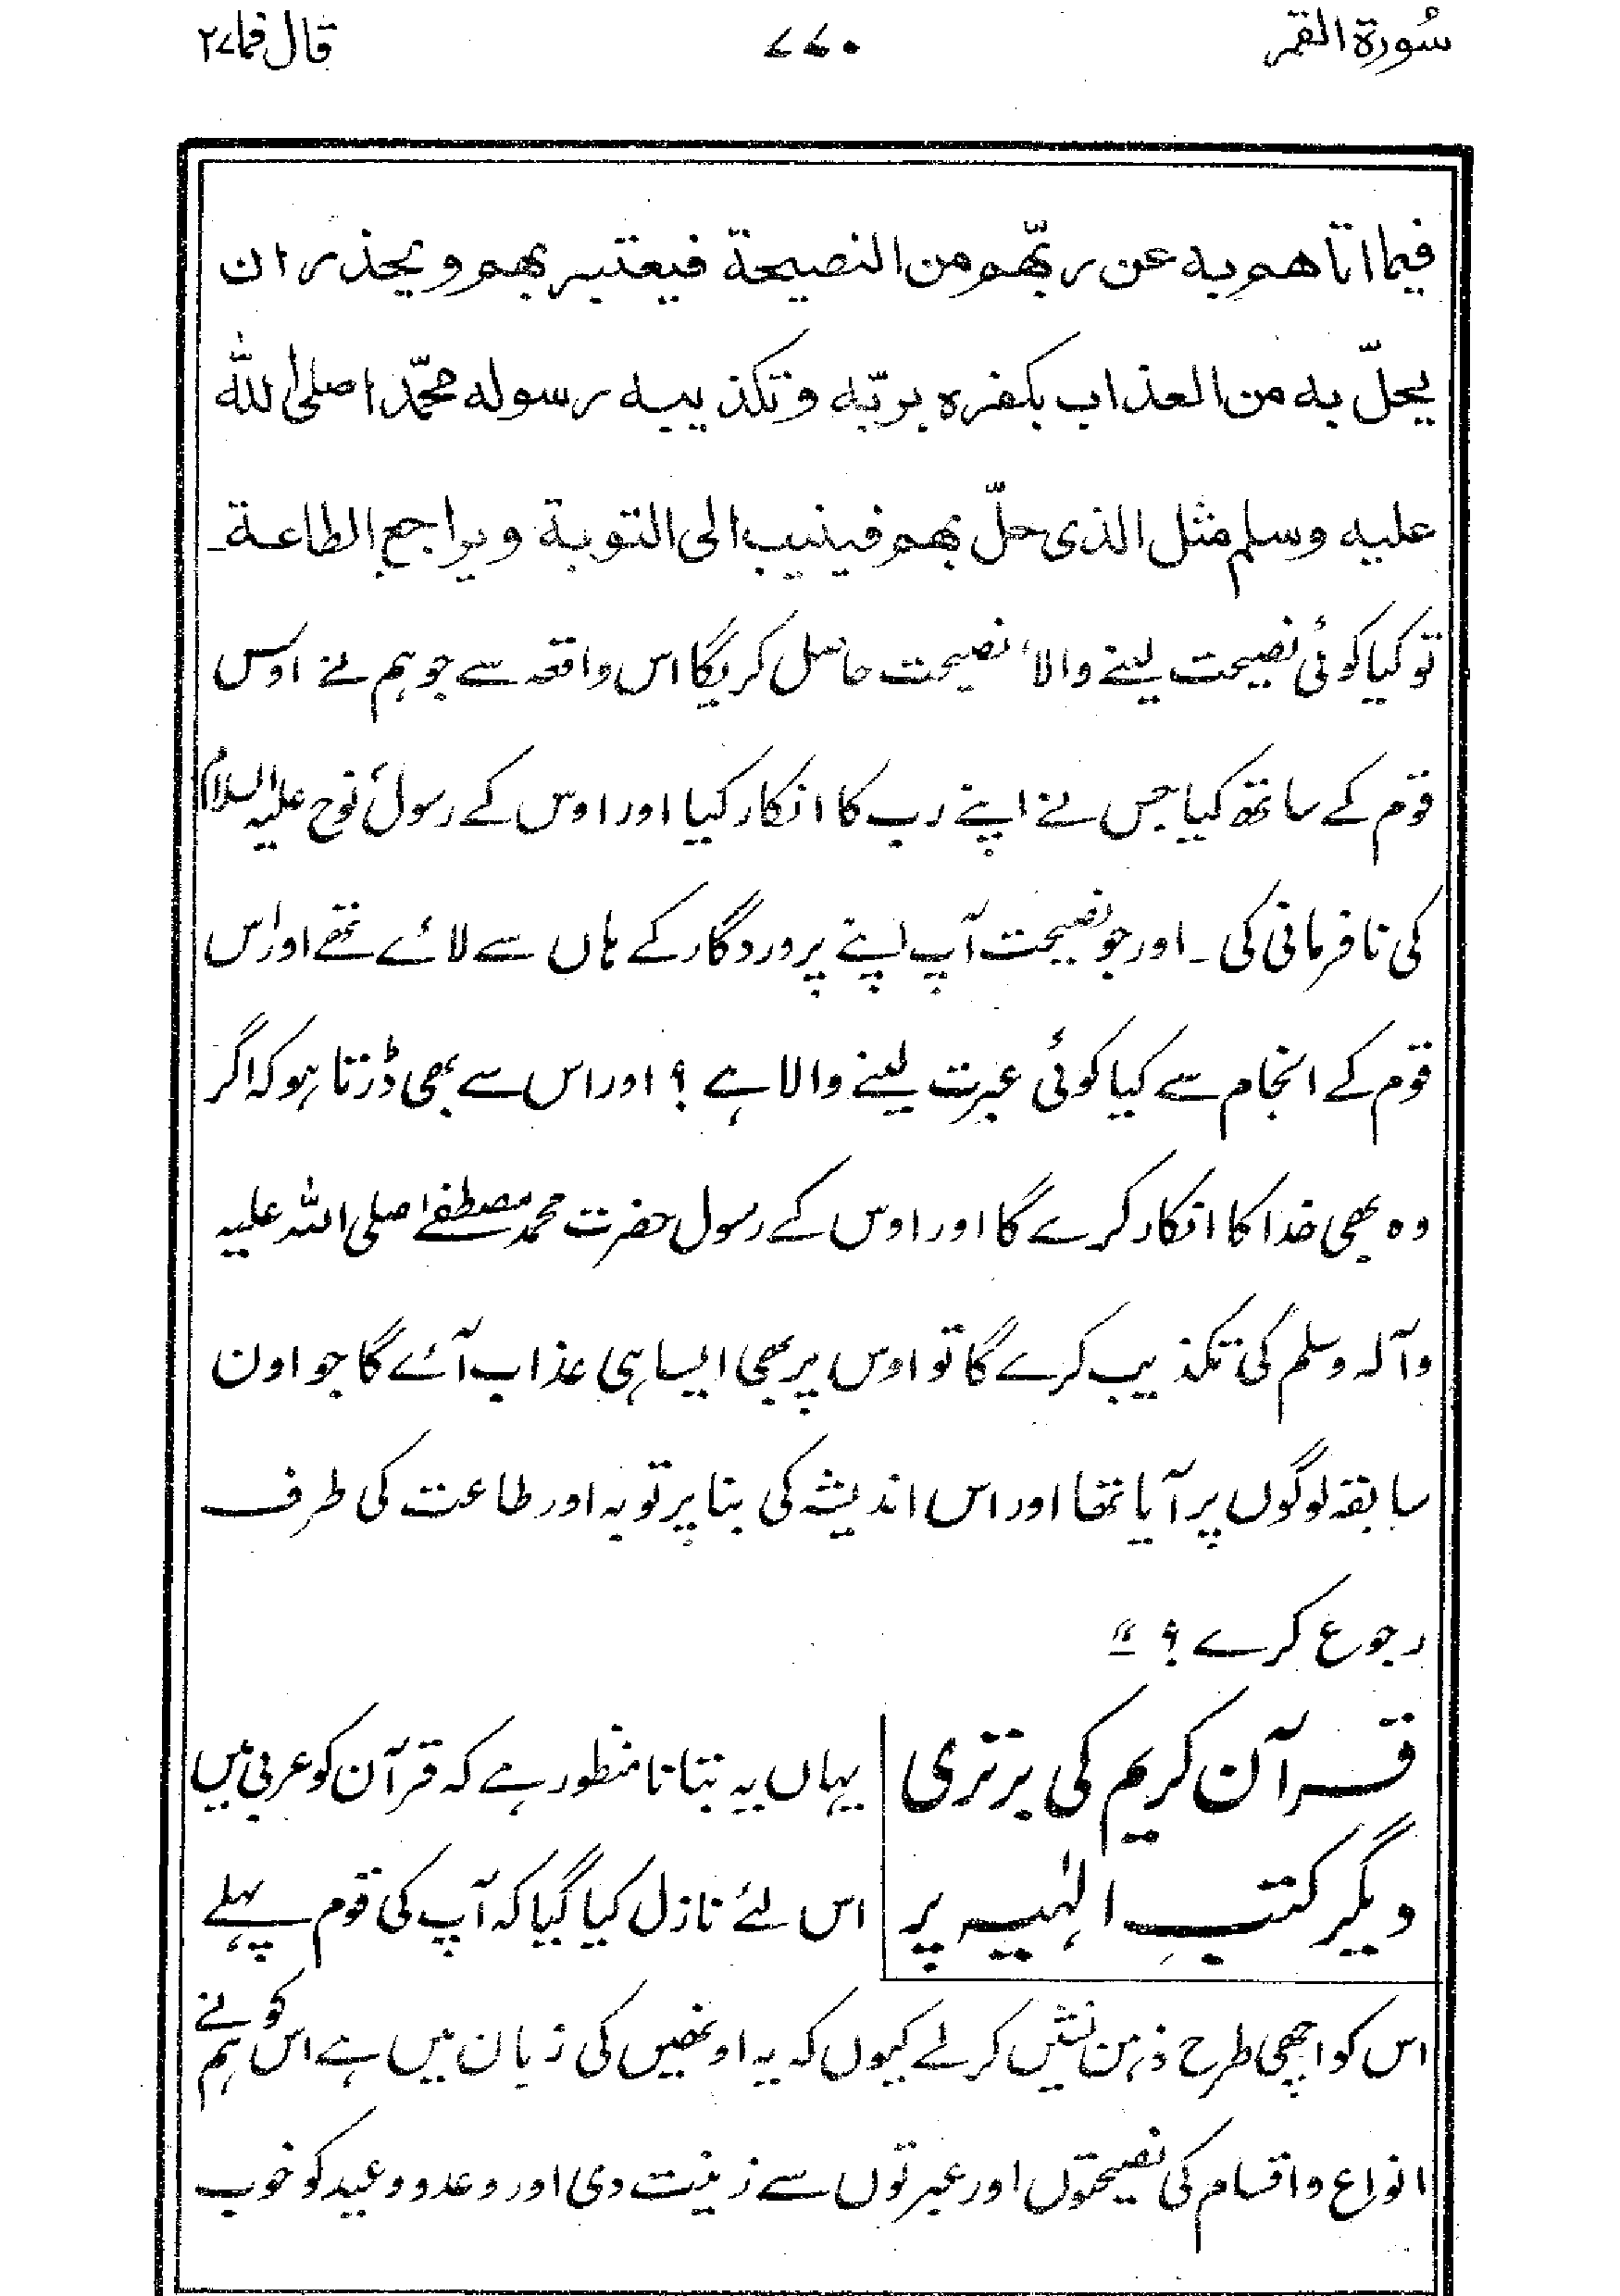 سُورة القمر ۷۷۰ قال فما ۲۷
فيما اتاهم به عن ربّهم من النصيحة فيعتبر بهم ويحذر ان
يحلّ به من العذاب بكفره بربّه وتكذيبه رسوله محمّدا صلى الله
عليه وسلم مثل الذى حلّ بهم فينيب الى التوبة ويراجع الطاعة۔
تو کیا کوئی نصیحت لینے والا، نصیحت حاصل کریگا اس واقعہ سے جو ہم نے اوس
قوم کے ساتھ کیا جس نے اپنے رب کا انکار کیا اور اوس کے رسول نوح علیہ السلام
کی نافرمانی کی۔ اور جو نصیحت آپ اپنے پروردگار کے ہاں سے لائے تھے اور اس
قوم کے انجام سے کیا کوئی عبرت لینے والا ہے ؟ اور اس سے بھی ڈرتا ہو کہ اگر
وہ بھی خدا کا انکار کرے گا اور اوس کے رسول حضرت محمد مصطفےٰ صلی اللہ علیہ
وآلہ وسلم کی تکذیب کرے گا تو اوس پر بھی ایسا ہی عذاب آئے گا جو اون
سابقہ لوگوں پر آیا تھا اور اس اندیشہ کی بنا پر توبہ اور طاعت کی طرف
رجوع کرے ؟ "
قرآن کریم کی برتری
دیگر کتبِ الٰہیہ پر
یہاں یہ بتانا منظور ہے کہ قرآن کو عربی میں
اس لئے نازل کیا گیا کہ آپ کی قوم پہلے
اس کو اچھی طرح ذہن نشیں کرلے کیوں کہ یہ اونھیں کی زبان میں ہے اس کو ہم نے
انواع و اقسام کی نصیحتوں اور عبرتوں سے زینت دی اور وعد و وعید کو خوب